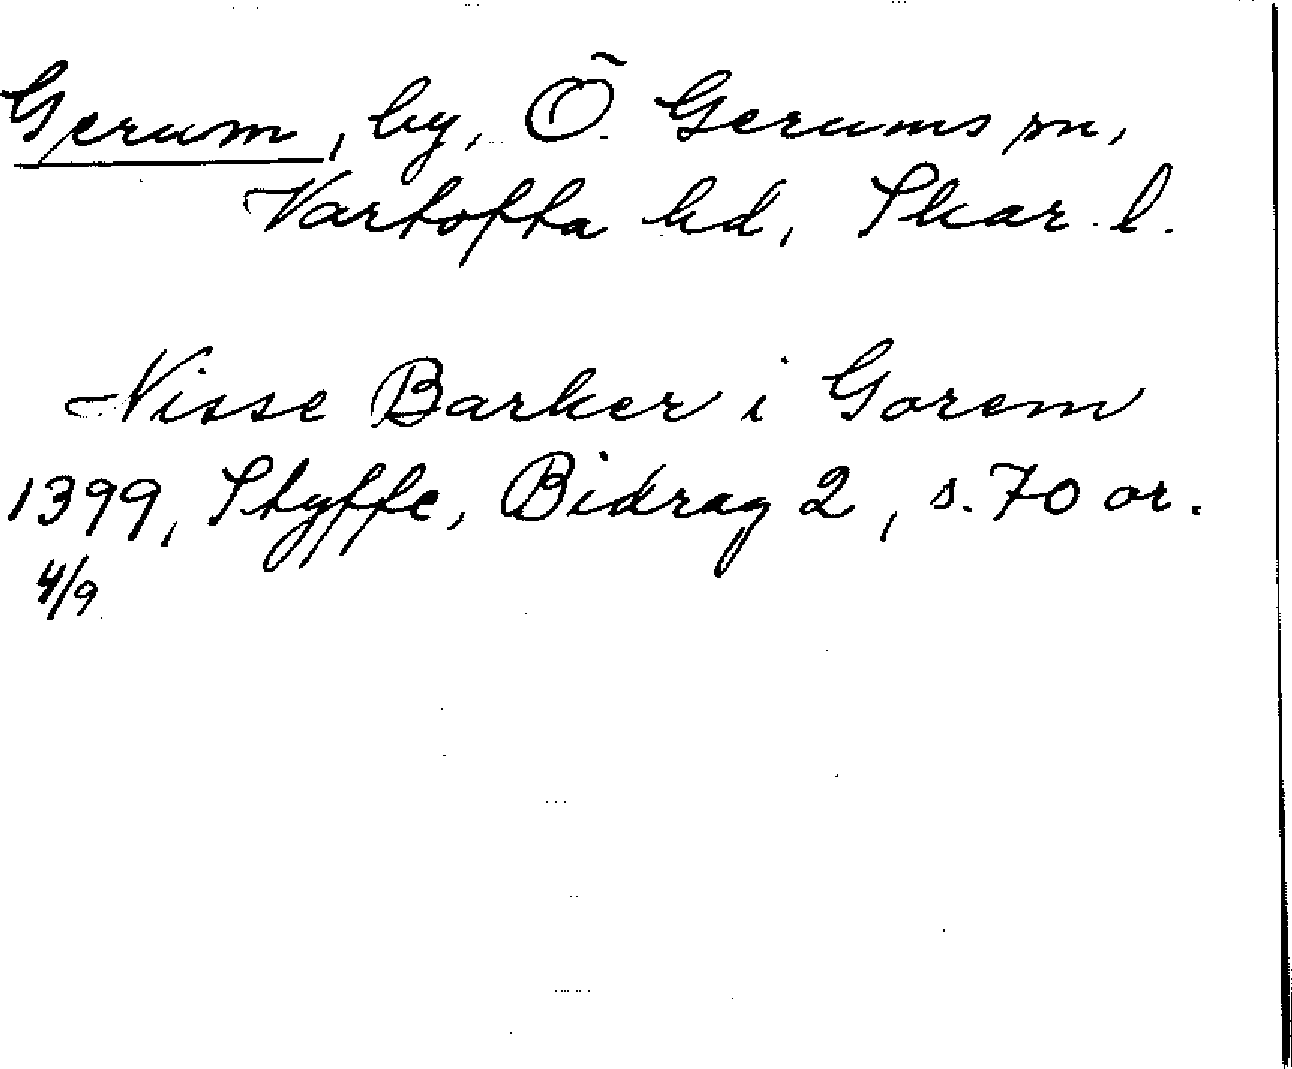 Gerum, by, Ö. Gerums sn,
Vartofta hd, Skar. l.
Nisse Barker i Gorem
1399, Styffe, Bidrag 2, s. 70 or.
4/9